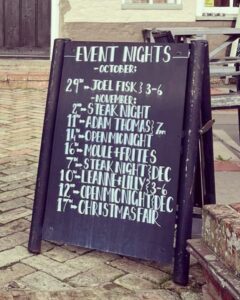 EVENT NIGHTS
-OCTOBER:-
29TH- JOEL FISK } 3-6
-NOVEMBER:-
2ND- STEAK NIGHT
11TH- ADAM THOMAS } 7PM
14TH- OPEN MIC NIGHT
16TH- MOULE + FRITES
7TH- STEAK NIGHT } DEC
10TH- LEANNE + LILLY } 3-6
12TH- OPEN MIC NIGHT } DEC
17TH- CHRISTMAS FAIR